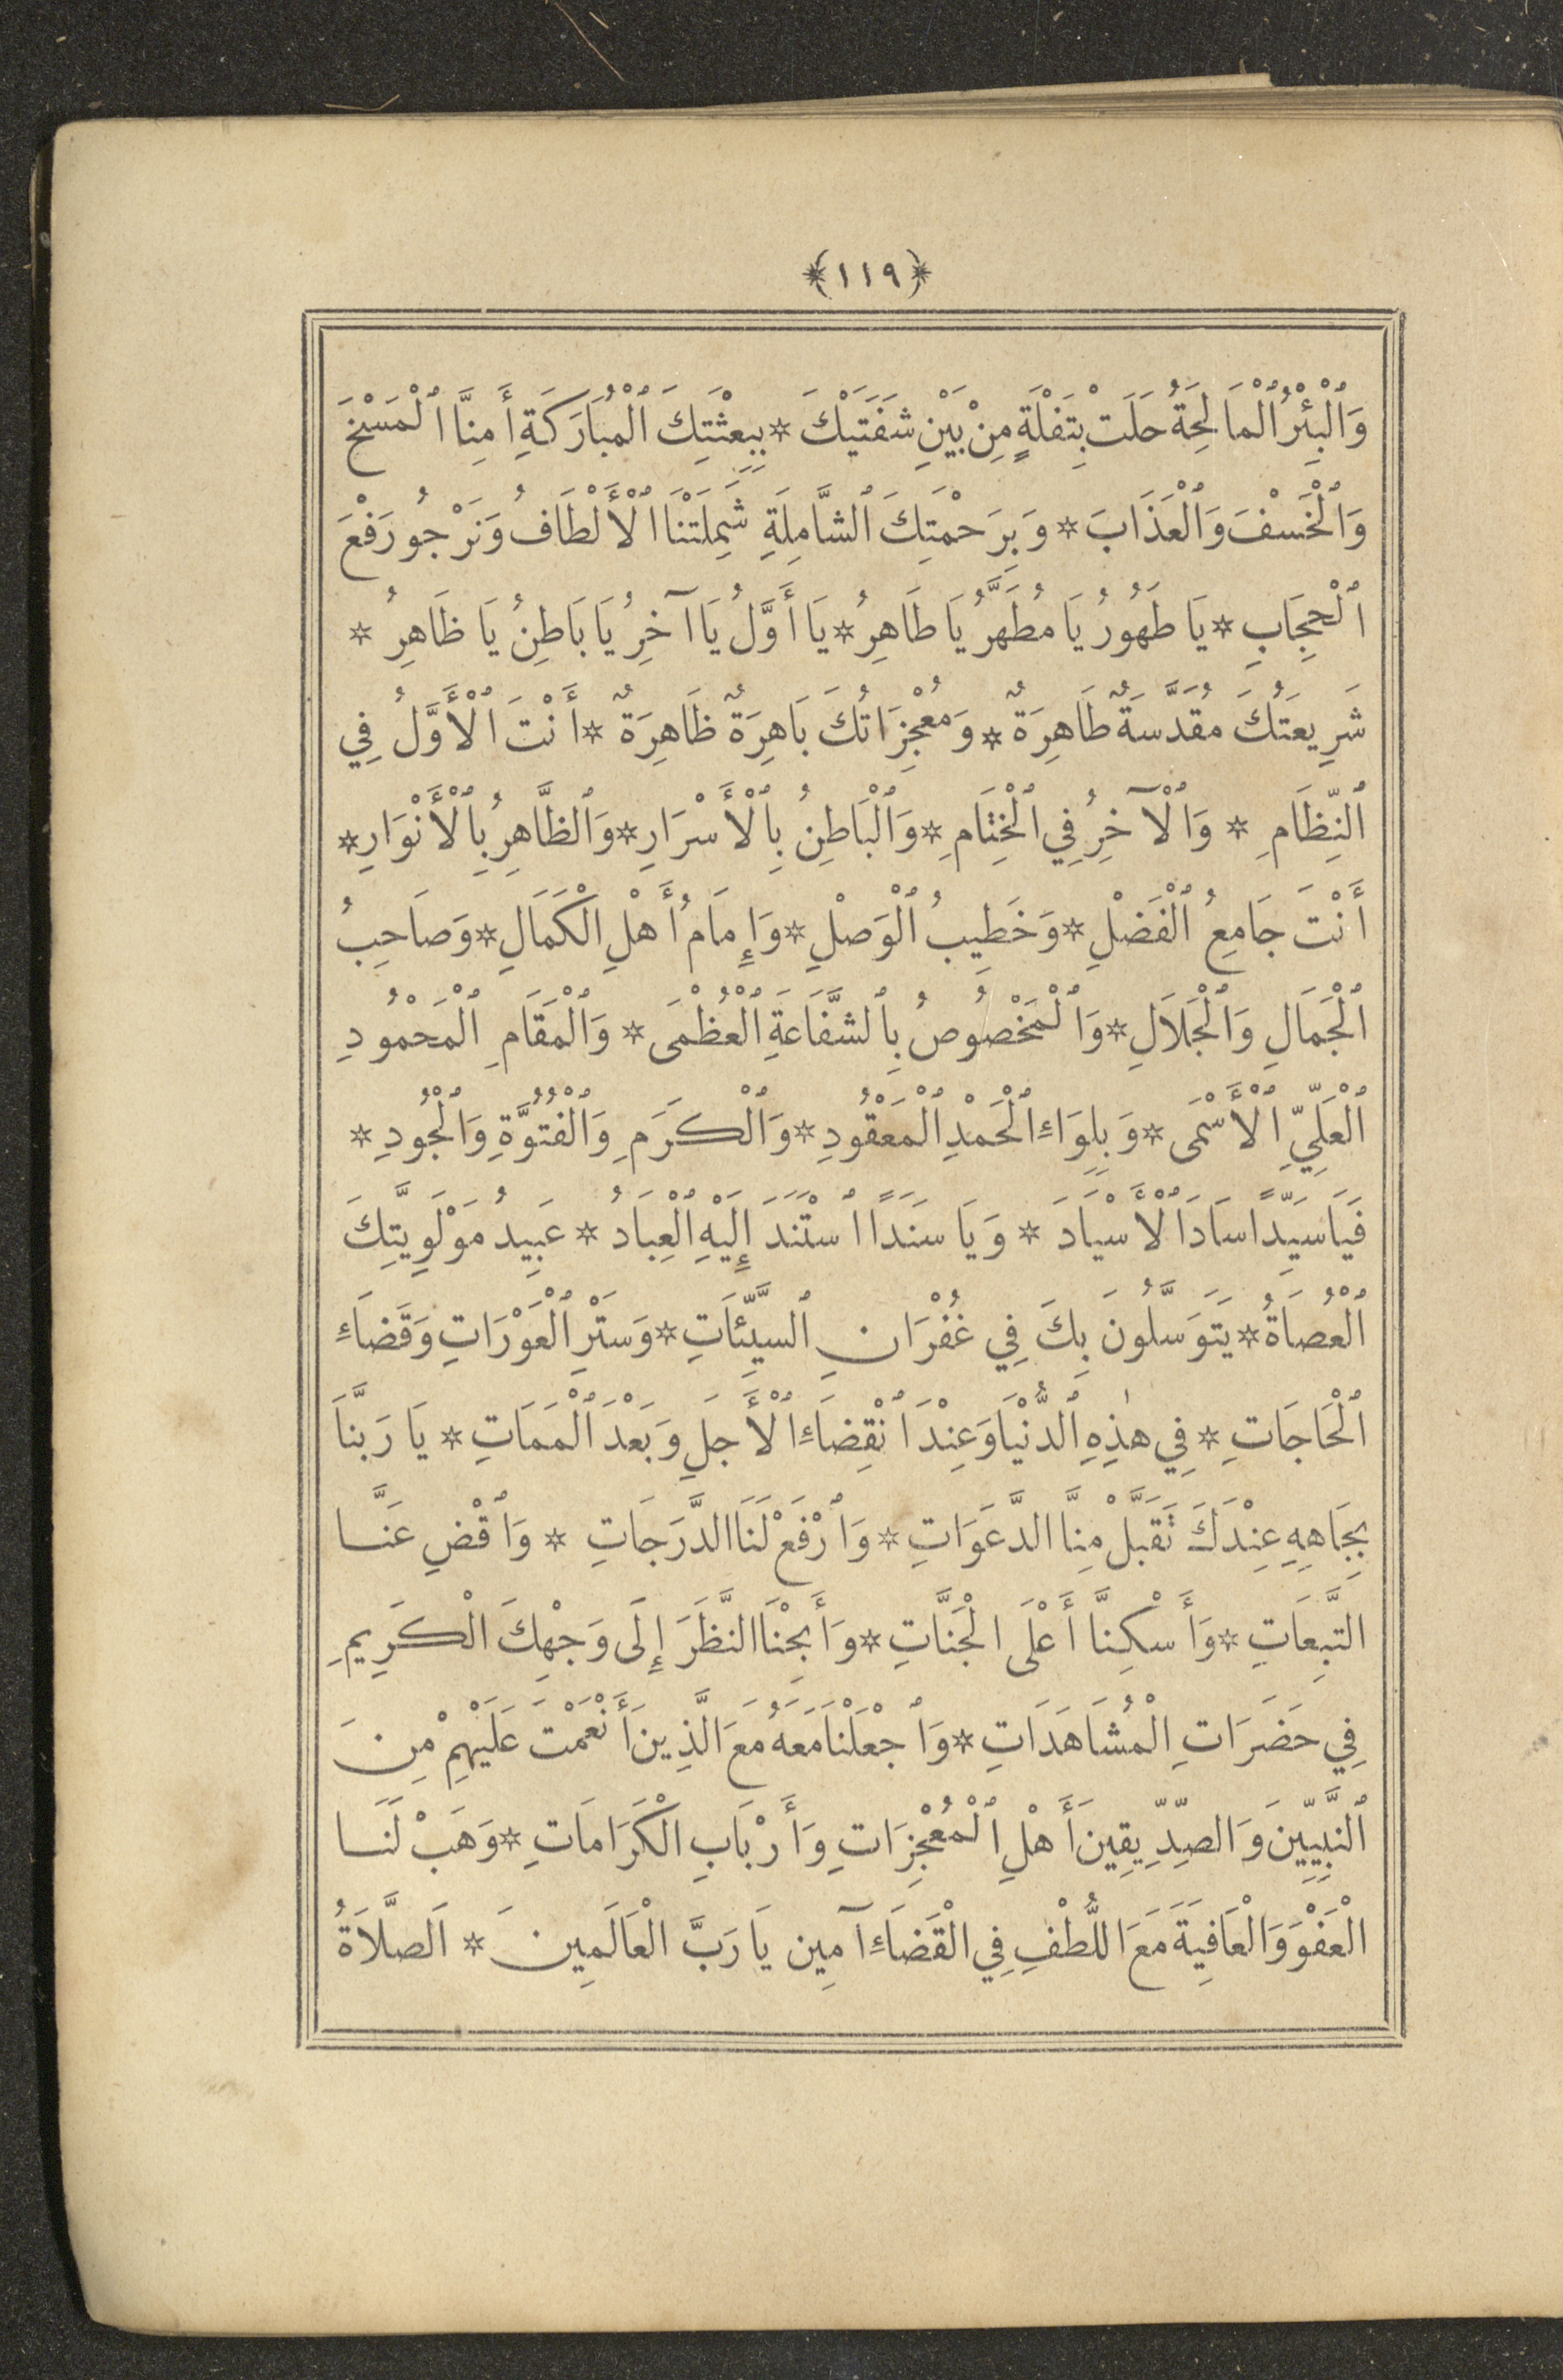 ﴿١١٩﴾
وَٱلْبِئْرُ ٱلْمَالِحَةُ حَلَتْ بِتَفْلَةٍ مِنْ بَيْنِ شَفَتَيْكَ * بِبِعْثَتِكَ ٱلْمُبَارَكَةِ أَمِنَّا ٱلْمَسْخَ
وَٱلْخَسْفَ وَٱلْعَذَابَ * وَبِرَحْمَتِكَ ٱلشَّامِلَةِ شَمِلَتْنَا ٱلْأَلْطَافُ وَنَرْجُو رَفْعَ
ٱلْحِجَابِ * يَا طَهُورُ يَا مُطَهَّرُ يَا طَاهِرُ * يَا أَوَّلُ يَا آخِرُ يَا بَاطِنُ يَا ظَاهِرُ *
شَرِيعَتُكَ مُقَدَّسَةٌ طَاهِرَةٌ * وَمُعْجِزَاتُكَ بَاهِرَةٌ ظَاهِرَةٌ * أَنْتَ ٱلْأَوَّلُ فِي
ٱلنِّظَامِ * وَٱلْآخِرُ فِي ٱلْخِتَامِ * وَٱلْبَاطِنُ بِٱلْأَسْرَارِ * وَٱلظَّاهِرُ بِٱلْأَنْوَارِ *
أَنْتَ جَامِعُ ٱلْفَضْلِ * وَخَطِيبُ ٱلْوَصْلِ * وَإِمَامُ أَهْلِ الْكَمَالِ * وَصَاحِبُ
ٱلْجَمَالِ وَٱلْجَلَالِ * وَٱلْمَخْصُوصُ بِٱلشَّفَاعَةِ ٱلْعُظْمَى * وَٱلْمَقَامِ ٱلْمَحْمُودِ
ٱلْعَلِيِّ ٱلْأَسْمَى * وَبِلِوَاءِ ٱلْحَمْدِ ٱلْمَعْقُودِ * وَٱلْكَرَمِ وَٱلْفُتُوَّةِ وَٱلْجُودِ *
فَيَا سَيِّدًا سَادَ ٱلْأَسْيَادَ * وَيَا سَنَدًا ٱسْتَنَدَ إِلَيْهِ ٱلْعِبَادُ * عَبِيدُ مَوْلَوِيَّتِكَ
ٱلْعُصَاةُ * يَتَوَسَّلُونَ بِكَ فِي غُفْرَانِ ٱلسَّيِّئَاتِ * وَسَتْرِ ٱلْعَوْرَاتِ وَقَضَاءِ
ٱلْحَاجَاتِ * فِي هٰذِهِ ٱلدُّنْيَا وَعِنْدَ ٱنْقِضَاءِ ٱلْأَجَلِ وَبَعْدَ ٱلْمَمَاتِ * يَا رَبَّنَا
بِجَاهِهِ عِنْدَكَ تَقَبَّلْ مِنَّا الدَّعَوَاتِ * وَٱرْفَعْ لَنَا الدَّرَجَاتِ * وَٱقْضِ عَنَّا
التَّبِعَاتِ * وَأَسْكِنَّا أَعْلَى الْجَنَّاتِ * وَأَبِحْنَا النَّظَرَ إِلَى وَجْهِكَ الْكَرِيمِ
فِي حَضَرَاتِ الْمُشَاهَدَاتِ * وَٱجْعَلْنَا مَعَهُ مَعَ الَّذِينَ أَنْعَمْتَ عَلَيْهِمْ مِنَ
ٱلنَّبِيِّينَ وَالصِّدِّيقِينَ أَهْلِ ٱلْمُعْجِزَاتِ وَأَرْبَابِ الْكَرَامَاتِ * وَهَبْ لَنَا
الْعَفْوَ وَالْعَافِيَةَ مَعَ اللُّطْفِ فِي الْقَضَاءِ آمِين يَا رَبَّ الْعَالَمِينَ * اَلصَّلَاةُ